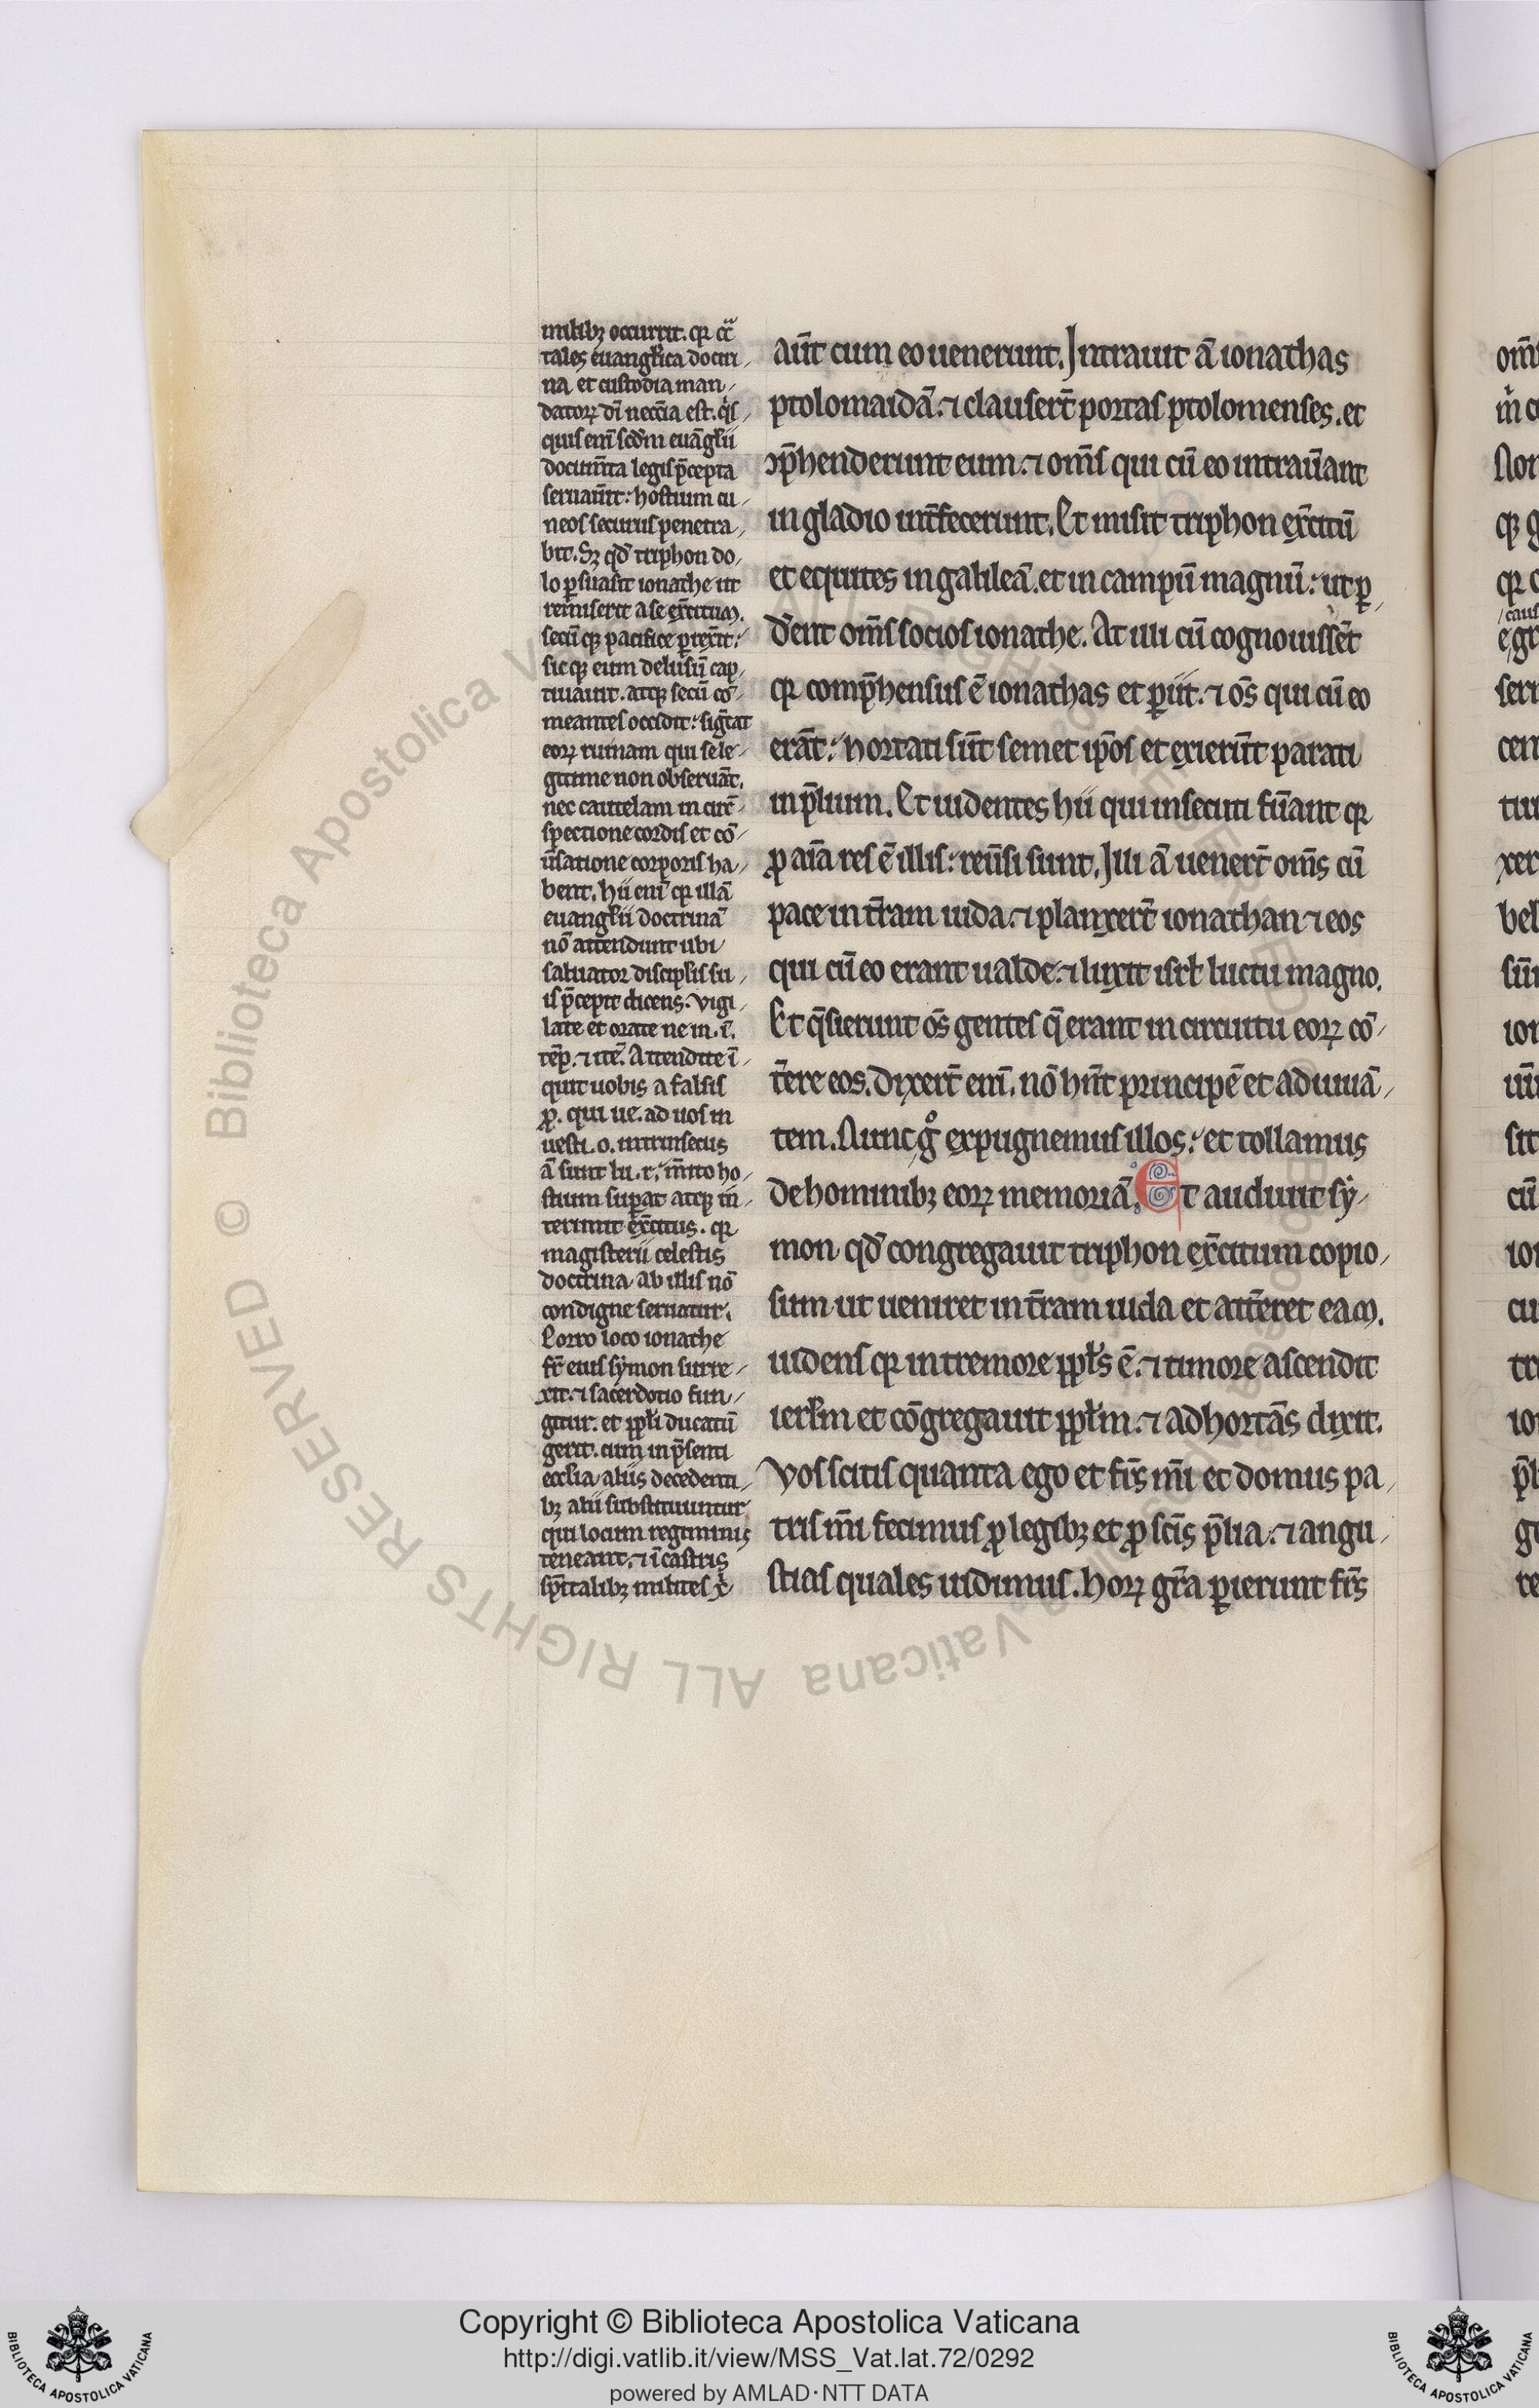 milibꝫ occurrit. qꝛ
tales euanglica doctri
na et custodia man
datoꝝ dn̄i necc̄ia est.
quis eni᷑ scd᷑m euāglii
docum̄ta legis p̄cepta
seruau̅it: hostium cu
neos securus penetra
bit. Sꝫ qd̄ triphon do
lo ꝑsuasit ionathe ut
remiserit a se exc̄itum.
secū qꝫ pacifice ꝑrex̄it:
sic qꝫ eum delusū cap
tiuauit. atqꝫ secū co᷑
meantes occidit: sig̅cat
eoꝝ ruinam qui se le
gitime non obseruāt.
nec cautelam in circ̄
spectione cordis et co᷑
u̅satione corporis ha
bent. hii eni᷑ qꝛ illā
euanglii doctrinā
nō attendunt ubi
saluator discipl̄is su
is p̄cepit dicens. Vigi
late et orate ne in. i᷑.
te᷑p. ⁊ ite᷑. Attendite i᷑
quit uobis a falsis
ꝓ. qui ue. ad uos in
uesti. o. intrinsecus
ā sunt lu. r. m̄ito ho
stium suꝑat atqꝫ in
terimit exc̄itus. qꝛ
magisterii celestis
doctrina ab illis nō
condigne seruatur.
Porro loco ionathe
fr̄ eius symon surre
xit. ⁊ sacerdotio fun
gitur. et ppl̄i ducatū
gerit. cum in p̄senti
eccl̄ia aliis decedenti
bꝫ alii substituuntur
qui locum regiminis
teneant. ⁊ i᷑ castris
sp̄italibꝫ milites
au̅t cum eo uenerunt. Intrauit ā ionathas
ptolomaidā. ⁊ clauser̄t portas ptolomenses. et
ↄp̄henderunt eum. ⁊ om̄s qui cū eo intrau̅ant
in gladio int̄fecerunt. Et misit triphon exc̄itū
et equites in galileā. et in campū magnū: ut ꝑ
d̄ent om̄s socios ionathe. At illi cū cognouisse᷑t
qꝛ comp̄hensus ē ionathas et ꝑiit. ⁊ o᷑s qui cū eo
erāt: hortati su᷑t semet ip̄os et exieru᷑t parati
in p̄lium. Et uidentes hii qui insecuti fu̅ant qꝛ
ꝓ aīa res ē illis: reu̅si sunt. Illi ā uener̄t om̄s cū
pace in t̄ram iuda. ⁊ planxer̄t ionathan ⁊ eos
qui cū eo erant ualde. ⁊ luxit isrl̄ luctu magno.
Et q̄sierunt o᷑s gentes q̄ erant in circuitu eoꝝ co᷑
t̄ere eos. dixer̄t eni᷑. nō hn̄t principē et adiuuā
tem. Nunc gͦ expugnemus illos: et tollamus
de hominibꝫ eoꝝ memoriā. Et audiuit sy
mon qd̄ congregauit triphon exc̄itum copio
sum ut ueniret in t̄ram iuda et att̄eret eam.
uidens qꝛ in tremore ppl̄s ē. ⁊ timore ascendit
ierl̄m et cōgregauit ppl̄m. ⁊ adhortās dixit.
Vos scitis quanta ego et fr̄s m̄i et domus pa
tris m̄i fecimus ꝓ legibꝫ et ꝓ sc̄is p̄lia. ⁊ angu
stias quales uidimus. hoꝝ gr̄a ꝑierunt fr̄s
© Biblioteca Apostolica Vaticana ALL RIGHTS RESERVED
Copyright © Biblioteca Apostolica Vaticana
http://digi.vatlib.it/view/MSS_Vat.lat.72/0292
powered by AMLAD·NTT DATA
BIBLIOTECA APOSTOLICA VATICANA
BIBLIOTECA APOSTOLICA VATICANA